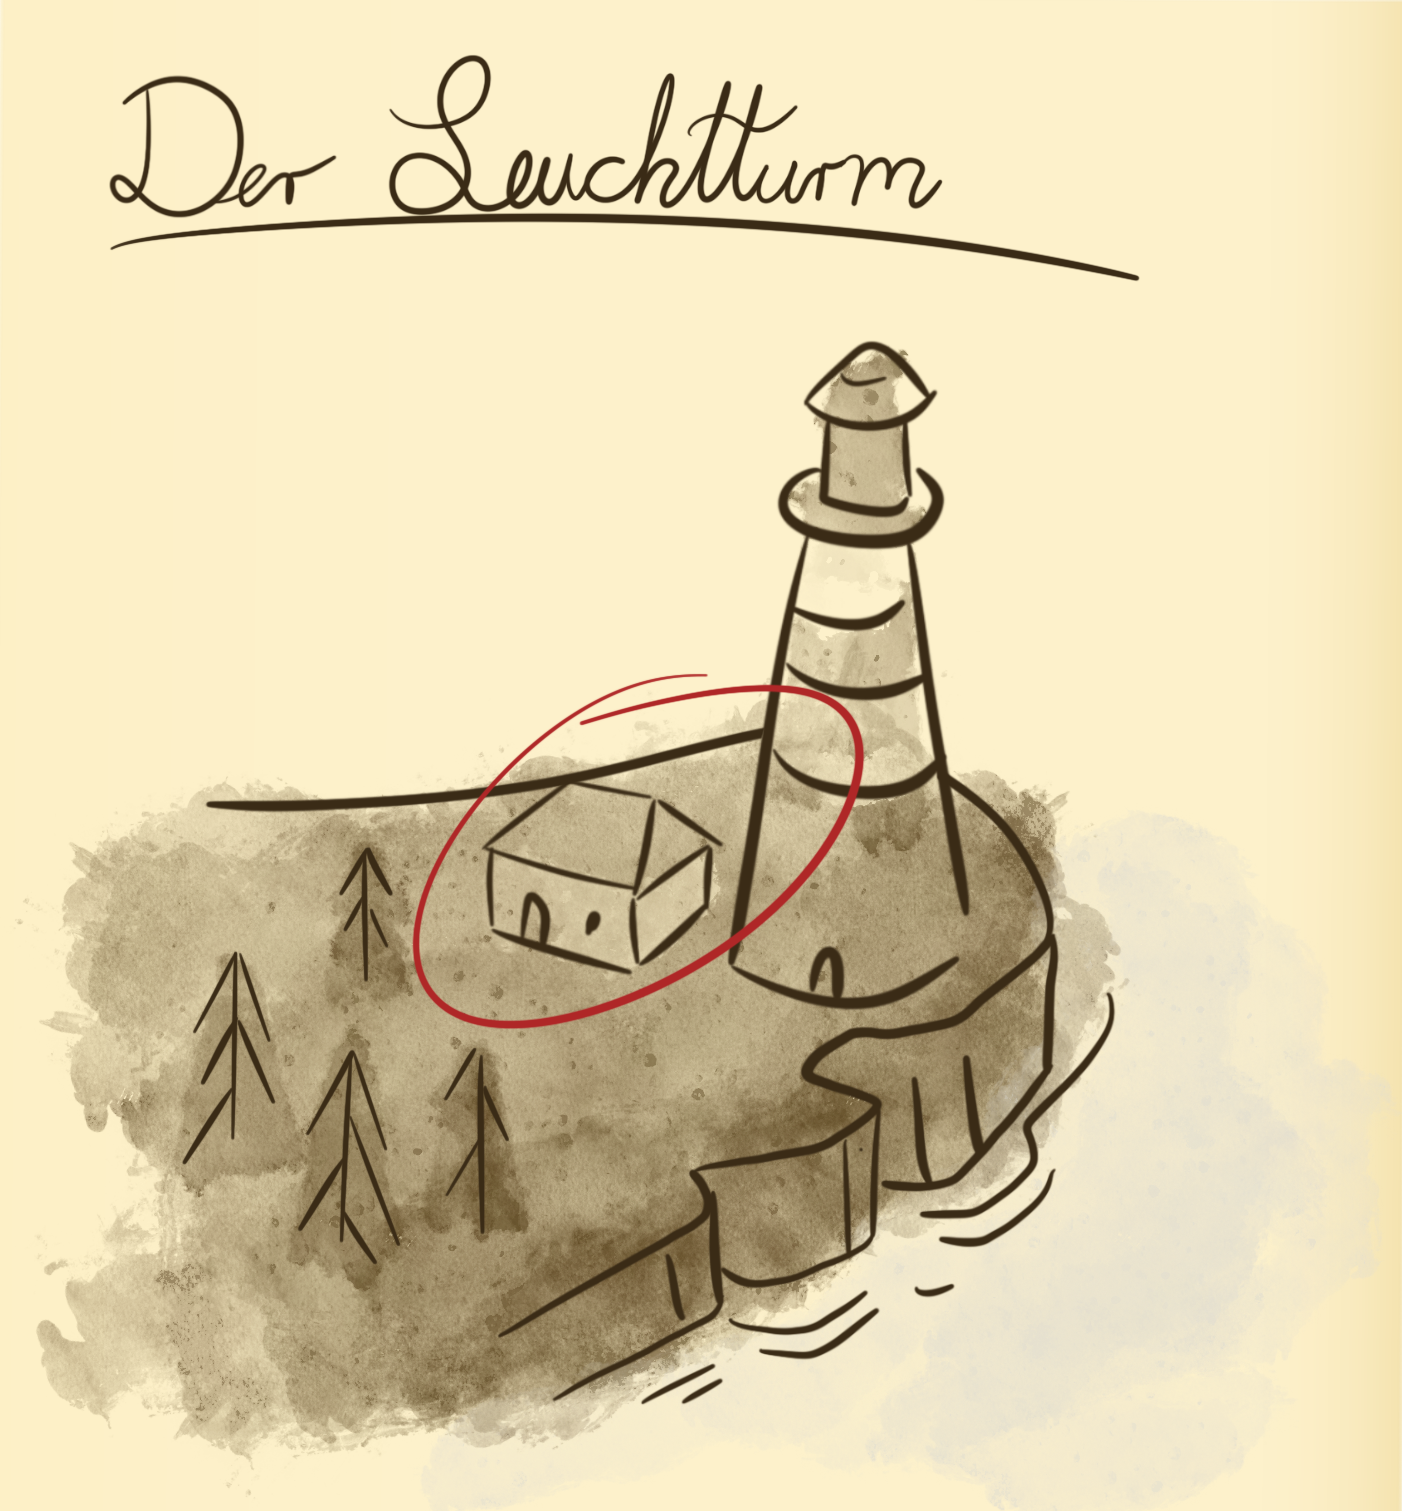 Der Leuchtturm